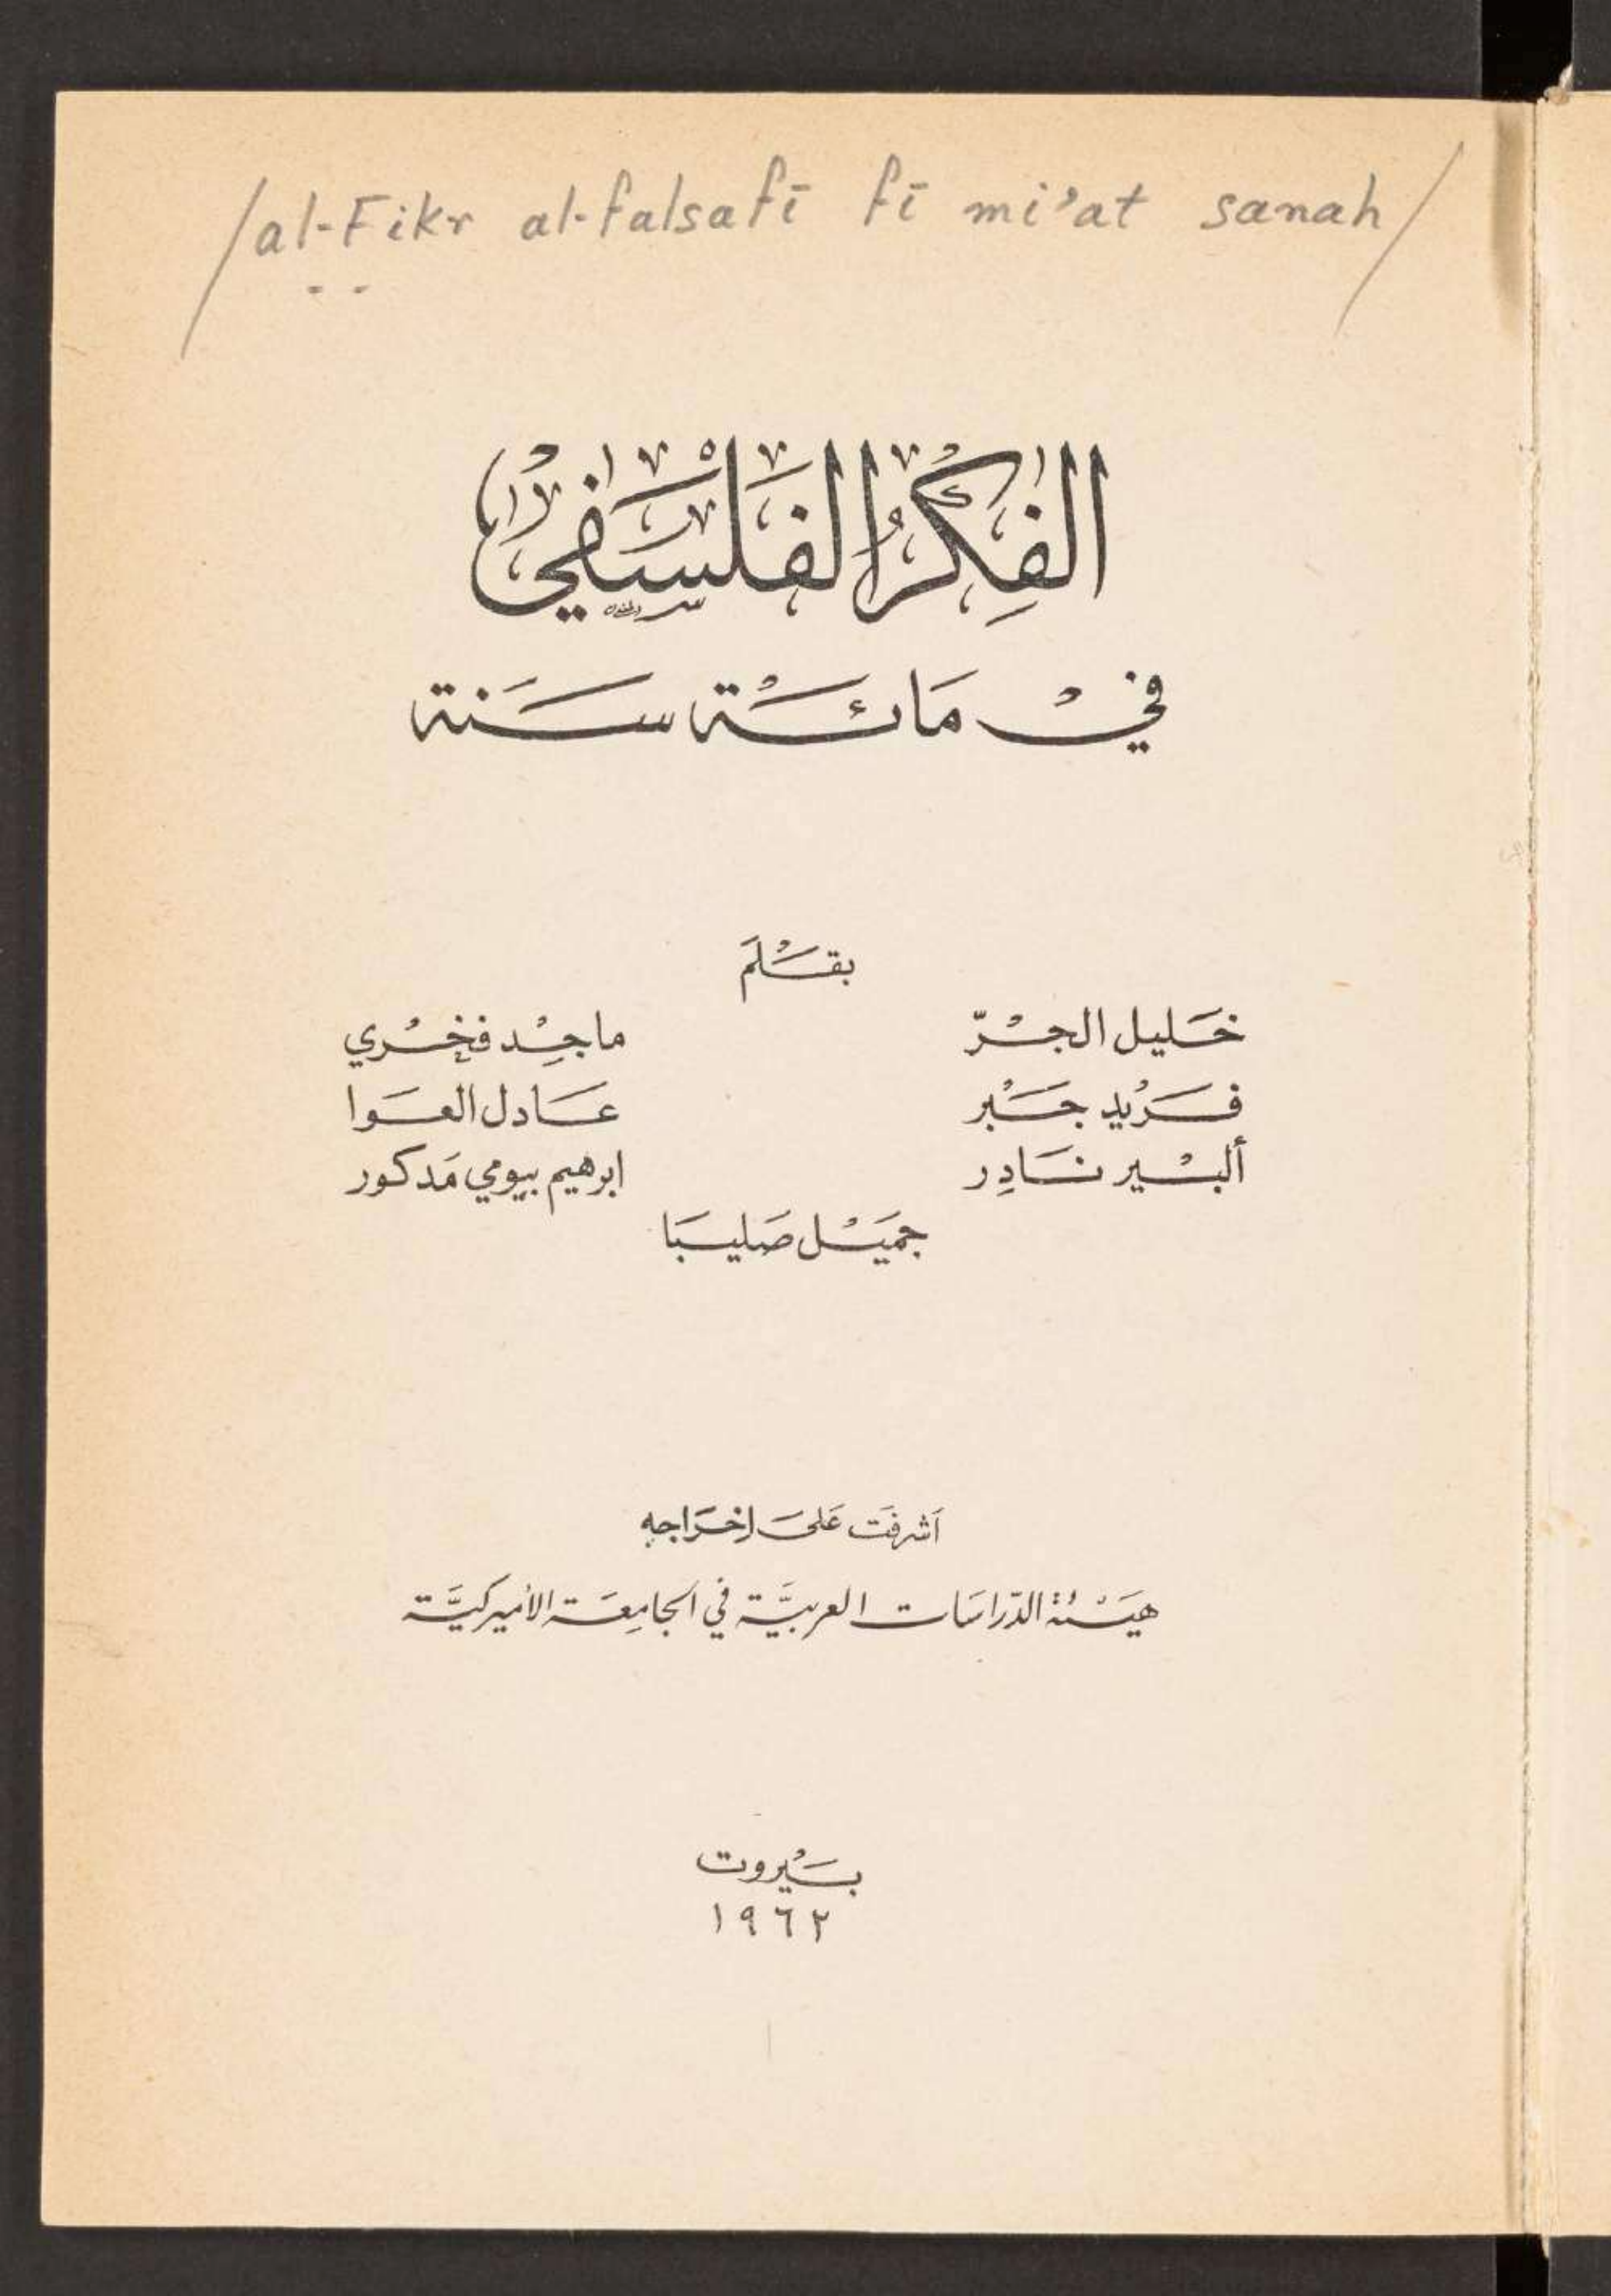 /al-Fikr al-falsafī fī mi'at sanah/
الفِكرُ الفَلسَفي
في مَائة سَنة
بقَلَم
خَليل الجرّ ماجِد فخري
فَريد جَبر عَادل العَوا
ألبير نَادِر ابرهيم بيومي مَدكور
جمَيل صَليبَا
اَشرفَت عَلى اِخرَاجِه
هيَئة الدّراسَات العربيَّة في الجامِعَة الأميركيَّة
بَيروت
١٩٦٢